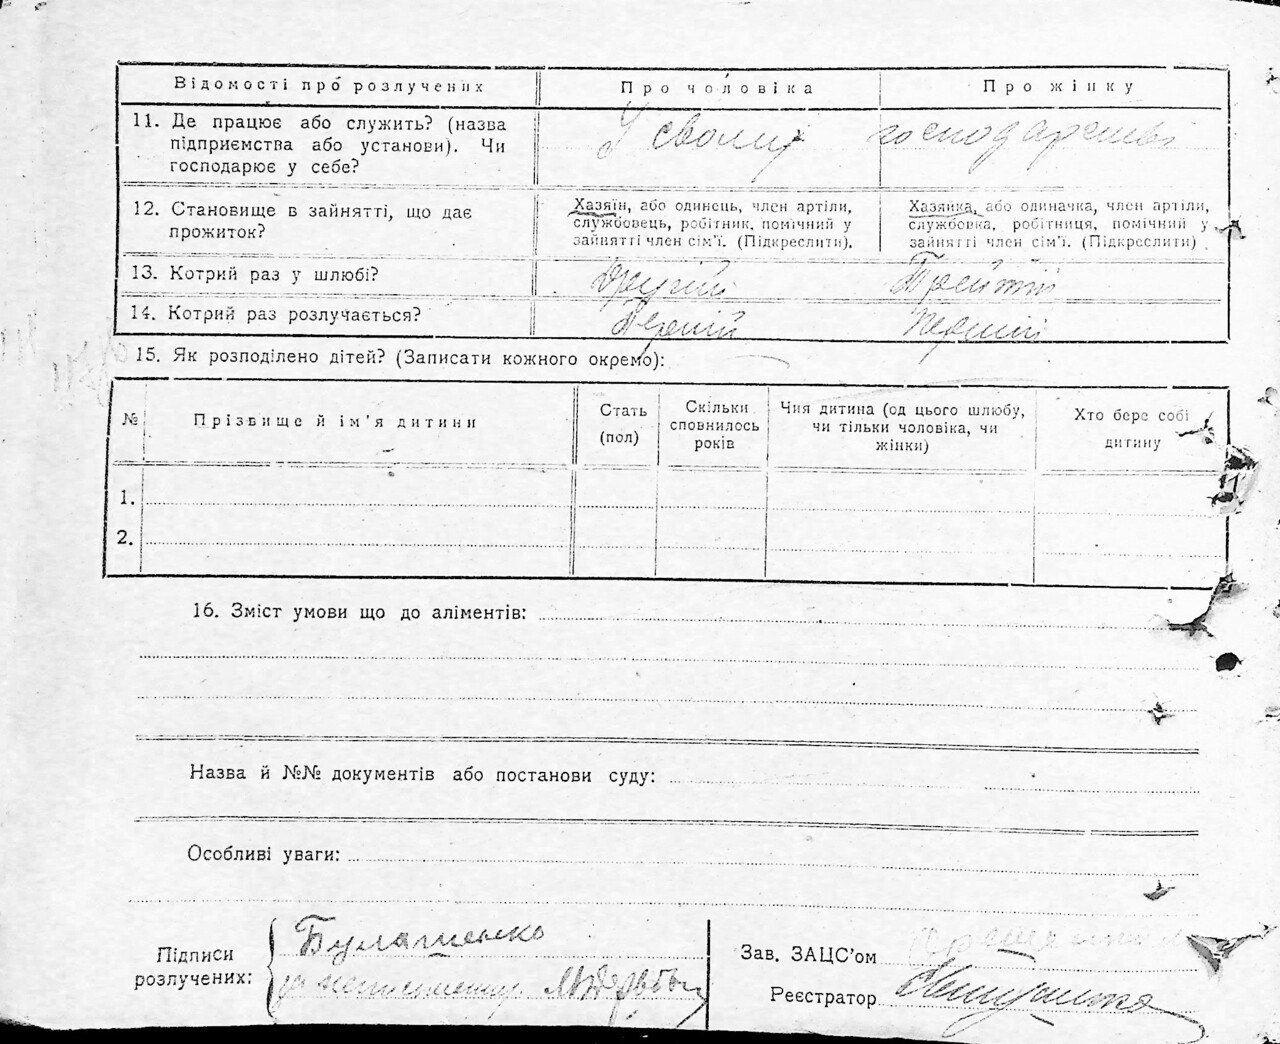 Відомості про розлучених
Про чоловіка
Про жінку
11. Де працює або служить? (назва
підприємства або установи). Чи
господарює у себе?
У своему господарстві
12. Становище в зайнятті, що дає
прожиток?
Хазяїн, або одинець, член артіли,
службовець, робітник, помічний у
зайнятті член сім'ї. (Підкреслити).
Хазяйка, або одиначка, член артіли,
службовка, робітниця, помічний у
зайнятті член сім'ї. (Підкреслити)
13. Котрий раз у шлюбі?
Другий
Третій
14. Котрий раз розлучається?
Перший
перший
15. Як розподілено дітей? (Записати кожного окремо):
№
Прізвище й ім'я дитини
Стать
(пол)
Скільки
сповнилось
років
Чия дитина (од цього шлюбу,
чи тільки чоловіка, чи
жінки)
Хто бере собі
дитину
1.
2.
16. Зміст умови що до аліментів:
Назва й №№ документів або постанови суду:
Особливі уваги:
Підписи
розлучених:
Булашенко
Зав. ЗАЦС'ом
Реєстратор